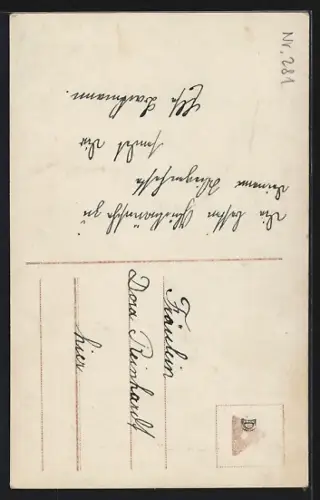 Nr. 281
Die besten Glückwünsche zu
deinem Wiegenfeste
sendet Dir
Else Lautmann.
Fräulein
Dora Reinhardt
hier